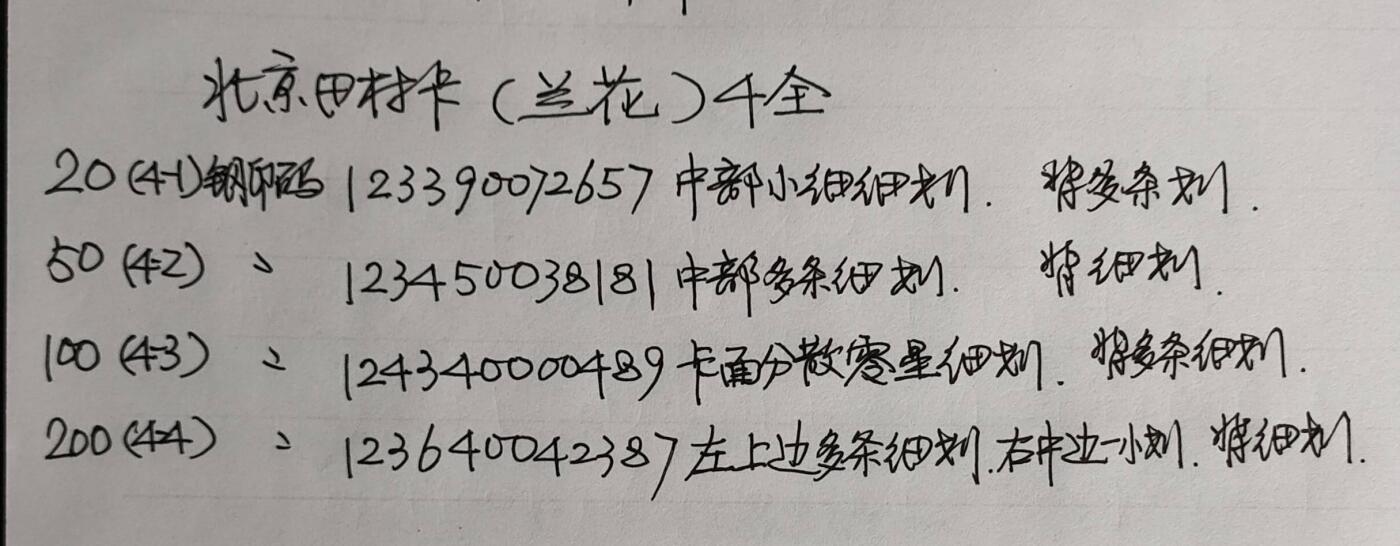 北京田村卡（兰花）4全
20(4-1)钢印码 123390072657 中部小细细划. 背多条划.
50(4-2) 〃 123450038181 中部多条细划. 背细划.
100(4-3) 〃 124340000489 卡面分散零星细划. 背多条细划.
200(4-4) 〃 123640042387 左上边多条细划.右中边一小划. 背细划.